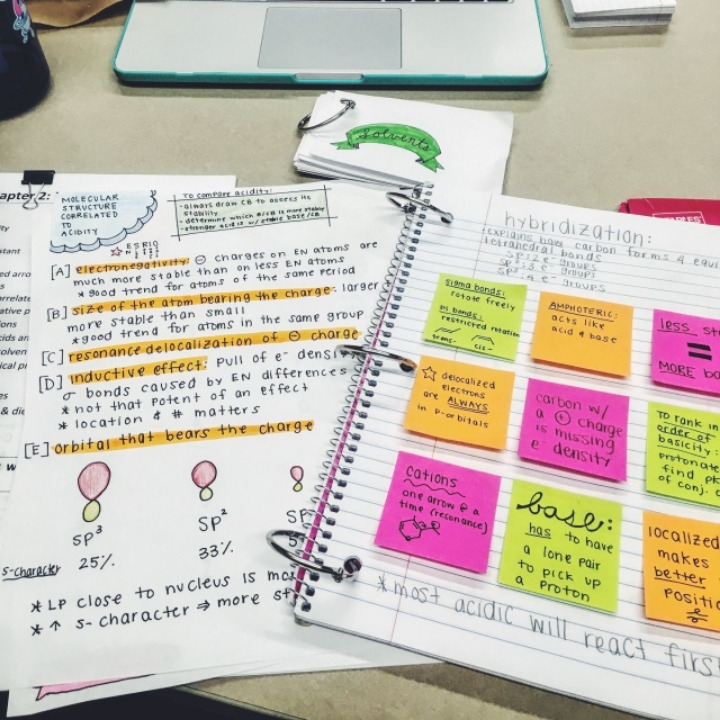 Solvents
apter 2:
MOLECULAR
STRUCTURE
CORRELATED
TO
ACIDITY
To compare acidity:
- always draw CB to assess its
stability
- determine which is more stable
- stronger acid w/ stable base/CB
[A] electronegativity: ⊖ charges on EN atoms are
much more stable than on less EN atoms
*good trend for atoms of the same period
[B] size of the atom bearing the charge: larger
more stable than small
*good trend for atoms in the same group
[C] resonance delocalization of ⊖ charge
[D] inductive effect: Pull of e⁻ density
σ bonds caused by EN differences
* not that potent of an effect
* location & # matters
[E] orbital that bears the charge
SP³ SP² SP
25% 33%
S-character
* LP close to nucleus is mo
* ↑ s-character ⇒ more st
hybridization:
explains how carbon forms 4 equi
tetrahedral bonds
sp: 2 e⁻ groups
sp²: 3 e⁻ groups
sp³: 4 e⁻ groups
sigma bonds:
rotate freely
pi bonds:
restricted rotation
trans- cis-
AMPHOTERIC:
acts like
acid & base
less st
=
MORE ba
☆ delocalized
electrons
are ALWAYS
in p-orbitals
carbon w/
a ⊕ charge
is missing
e⁻ density
To rank in
order of
basicity:
protonate
find pK
of conj.
cations
one arrow @ a
time (resonance)
base:
has to have
a lone pair
to pick up
a proton
localized
makes
better
positi
* most acidic will react first